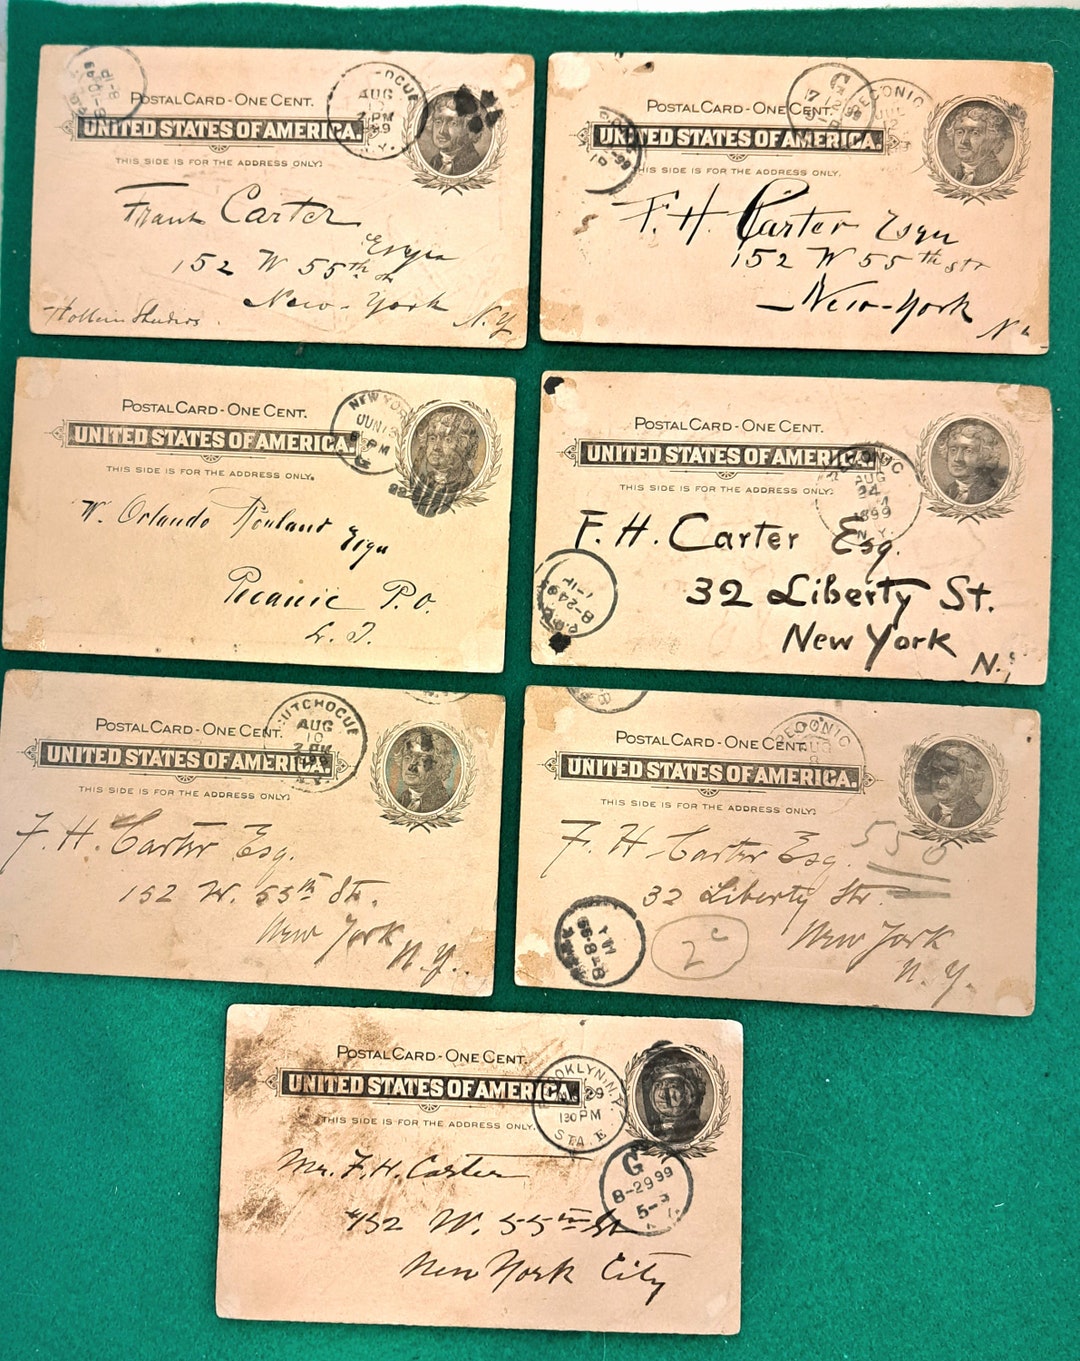 POSTAL CARD - ONE CENT.
UNITED STATES OF AMERICA.
THIS SIDE IS FOR THE ADDRESS ONLY.
AUG
N.Y.
Frank Carter
152 W 55th St
New-York N.Y.
POSTAL CARD - ONE CENT.
UNITED STATES OF AMERICA.
THIS SIDE IS FOR THE ADDRESS ONLY.
G
F. H. Carter Esqu
152 W 55th Str
New-York
POSTAL CARD - ONE CENT.
UNITED STATES OF AMERICA.
THIS SIDE IS FOR THE ADDRESS ONLY.
NEW YORK
W. Orlando Rouland
Pecanic P.O.
L. I.
POSTAL CARD - ONE CENT.
UNITED STATES OF AMERICA.
THIS SIDE IS FOR THE ADDRESS ONLY.
PECONIC
AUG
24
1899
N.Y.
F. H. Carter Esq.
32 Liberty St.
New York
N.
8-24
CUTCHOGUE
AUG
10
2 PM
POSTAL CARD - ONE CENT.
UNITED STATES OF AMERICA.
THIS SIDE IS FOR THE ADDRESS ONLY.
F. H. Carter Esq.
152 W. 55th St.
New York
N.Y.
PECONIC
AUG
POSTAL CARD - ONE CENT.
UNITED STATES OF AMERICA.
THIS SIDE IS FOR THE ADDRESS ONLY.
550
F. H. Carter Esq.
32 Liberty Str.
New York
N.Y.
2c
POSTAL CARD - ONE CENT.
UNITED STATES OF AMERICA.
THIS SIDE IS FOR THE ADDRESS ONLY.
BROOKLYN, N.Y.
29
130 PM
STA. E.
G
8-29 99
Mr. F. H. Carter
152 W. 55th St
New York City